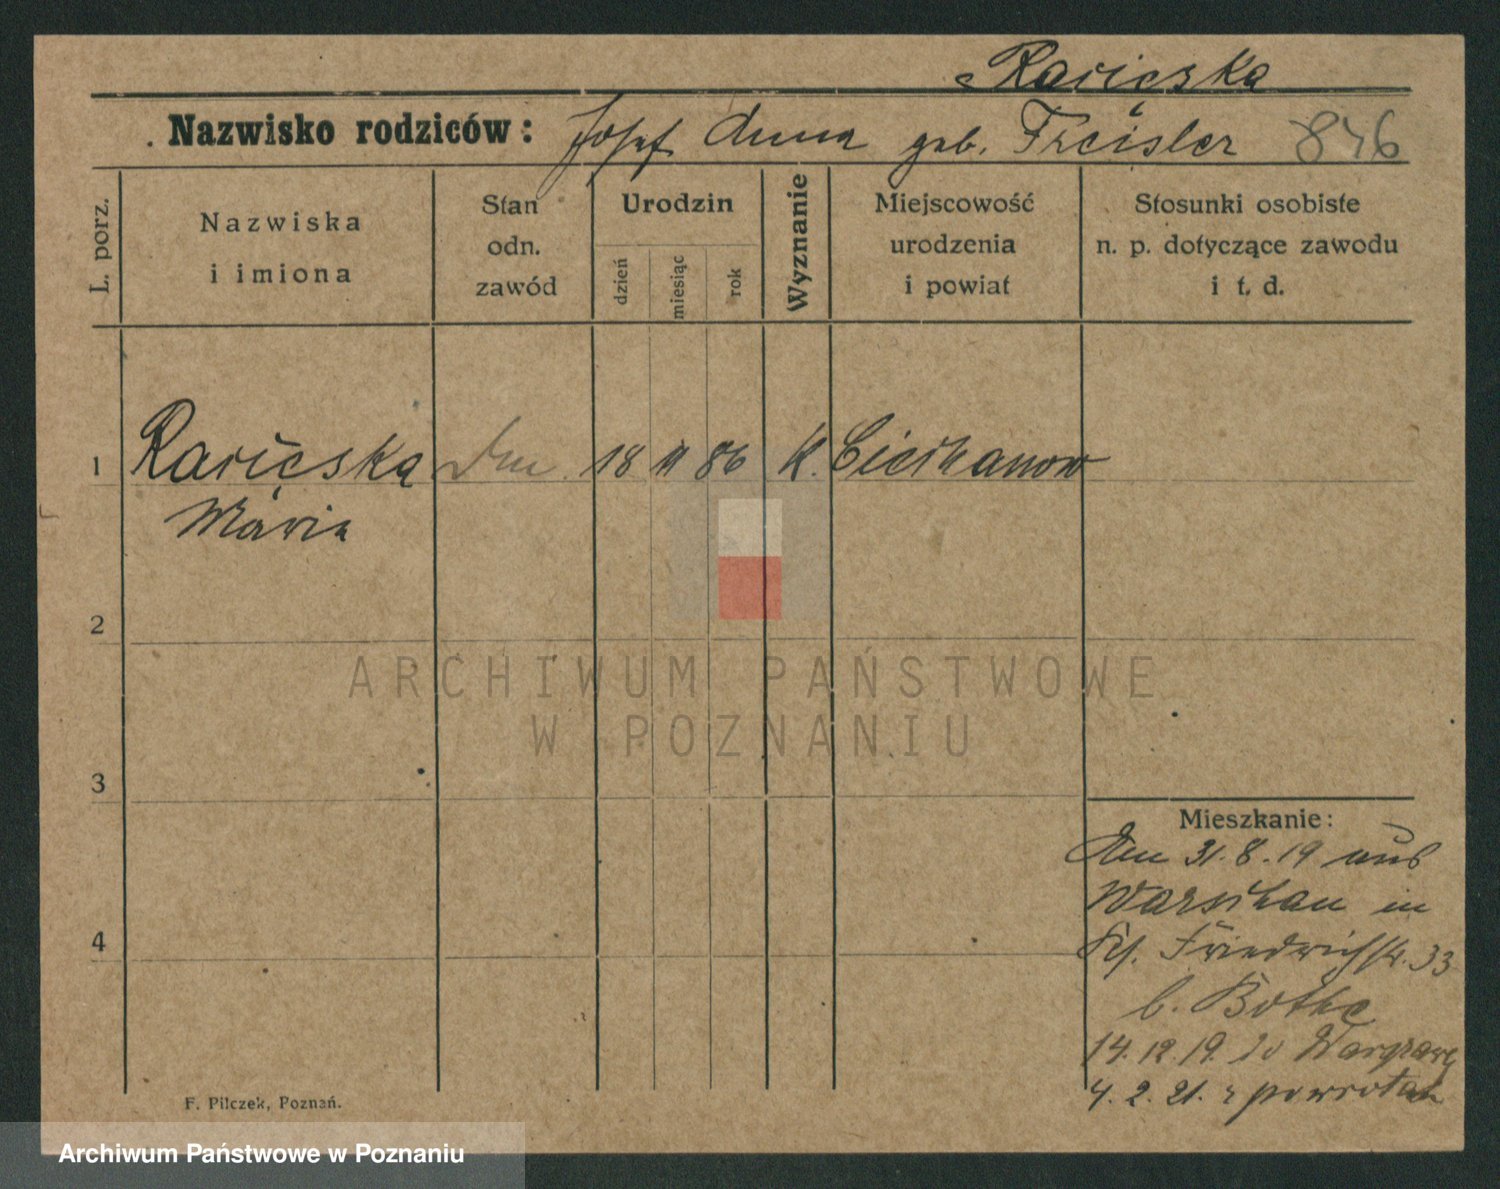 Rarięska
Nazwisko rodziców: Josef Anna geb. Freisler 846
L. porz.
Nazwiska
i imiona
Stan
odn.
zawód
Urodzin
dzień
miesiąc
rok
Wyznanie
Miejscowość
urodzenia
i powiat
Stosunki osobiste
n. p. dotyczące zawodu
i t. d.
1 18 86 K.
Maria
2
3
4
Mieszkanie:
31.8.19 aus
Warschau in
Friedrichstr. 33
b. Bothe
14.12.19. do Warszawy
4.2.21. z powrotem
F. Pilczek, Poznań.
ARCHIWUM PAŃSTWOWE
W POZNANIU
Archiwum Państwowe w Poznaniu